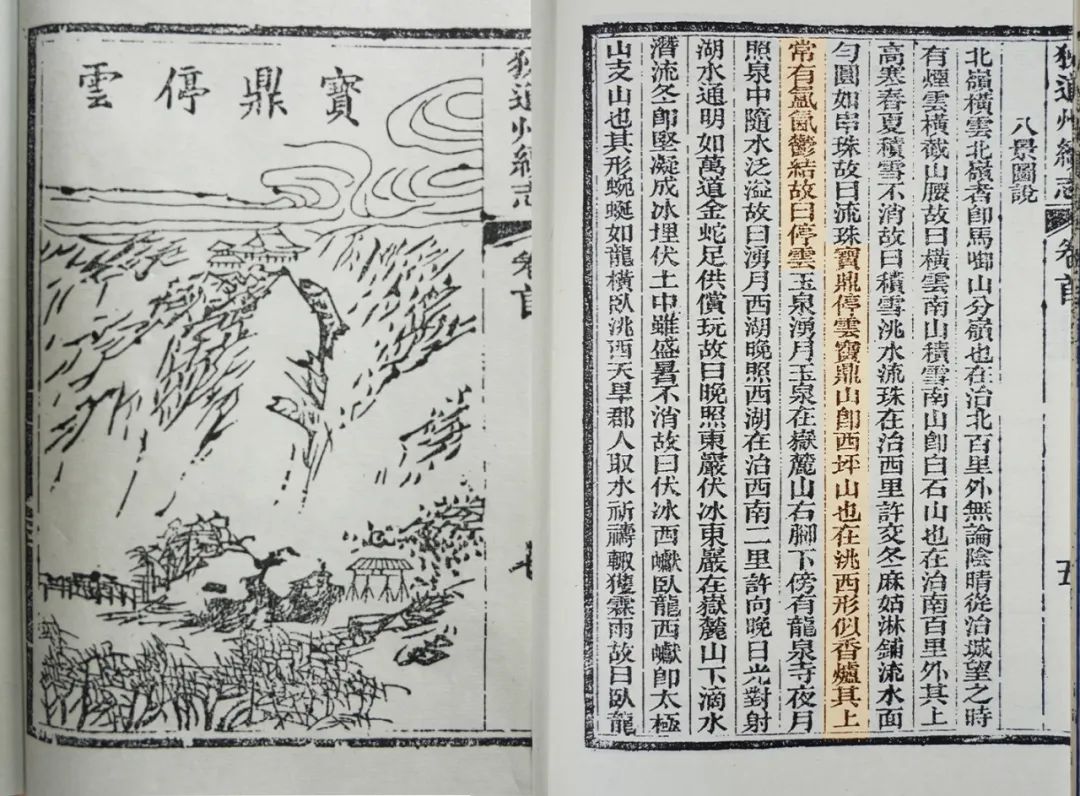 狄道州續志
卷首
五
八景圖說
北嶺橫雲北嶺者即馬啣山分嶺也在治北百里外無論陰晴從治城望之時
有煙雲橫截山腰故曰橫雲南山積雪南山即白石山也在治南百里外其上
高寒春夏積雪不消故曰積雪洮水流珠在治西里許交冬麻姑淋鋪流水面
勻圓如串珠故曰流珠寶鼎停雲寶鼎山即西坪山也在洮西形似香爐其上
常有氳氤鬱結故曰停雲玉泉湧月玉泉在嶽麓山右腳下傍有龍泉寺夜月
照泉中隨水泛溢故曰湧月西湖晚照西湖在治西南二里許向晚日光對射
湖水通明如萬道金蛇足供償玩故曰晚照東巖伏冰東巖在嶽麓山下滴水
潛流冬即堅凝成冰埋伏土中雖盛暑不消故曰伏冰西巘臥龍西巘即太極
山支山也其形蜿蜒如龍橫臥洮西天旱郡人取水祈禱輙獲霖雨故曰臥龍
狄道州續志
卷首
七
寶鼎停雲